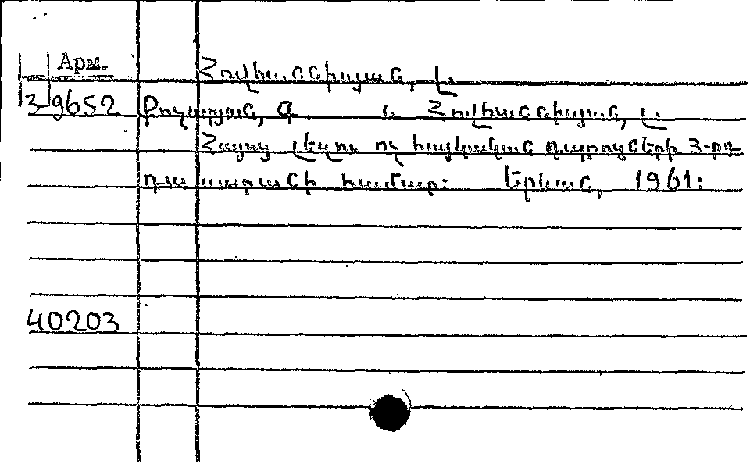 Арм. Հովհաննիսյան, Լ.
3 9652 Թոխոյան, Գ. և Հովհաննիսյան, Լ.
Հայոց լեզու ոչ հայկական դպրոցների 3-րդ
դասարանի համար: Երևան, 1961:
40203